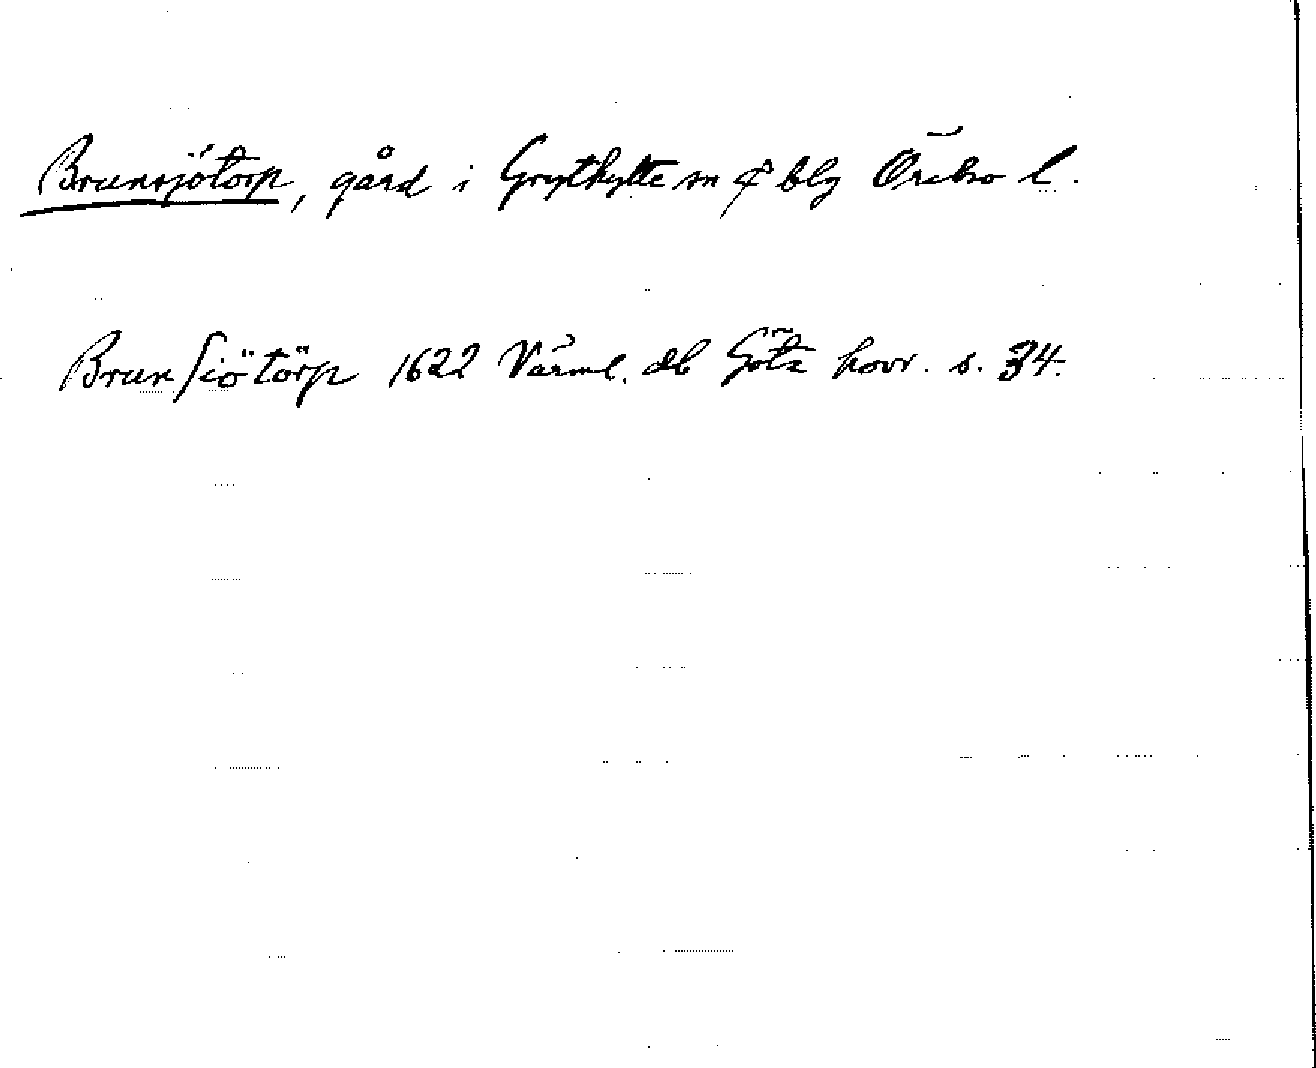 Brunsjötorp, gård i Grythytte sn & blg Örebro l.
Brunsiötörp 1622 Värml. db Göta hovr. s. 34.